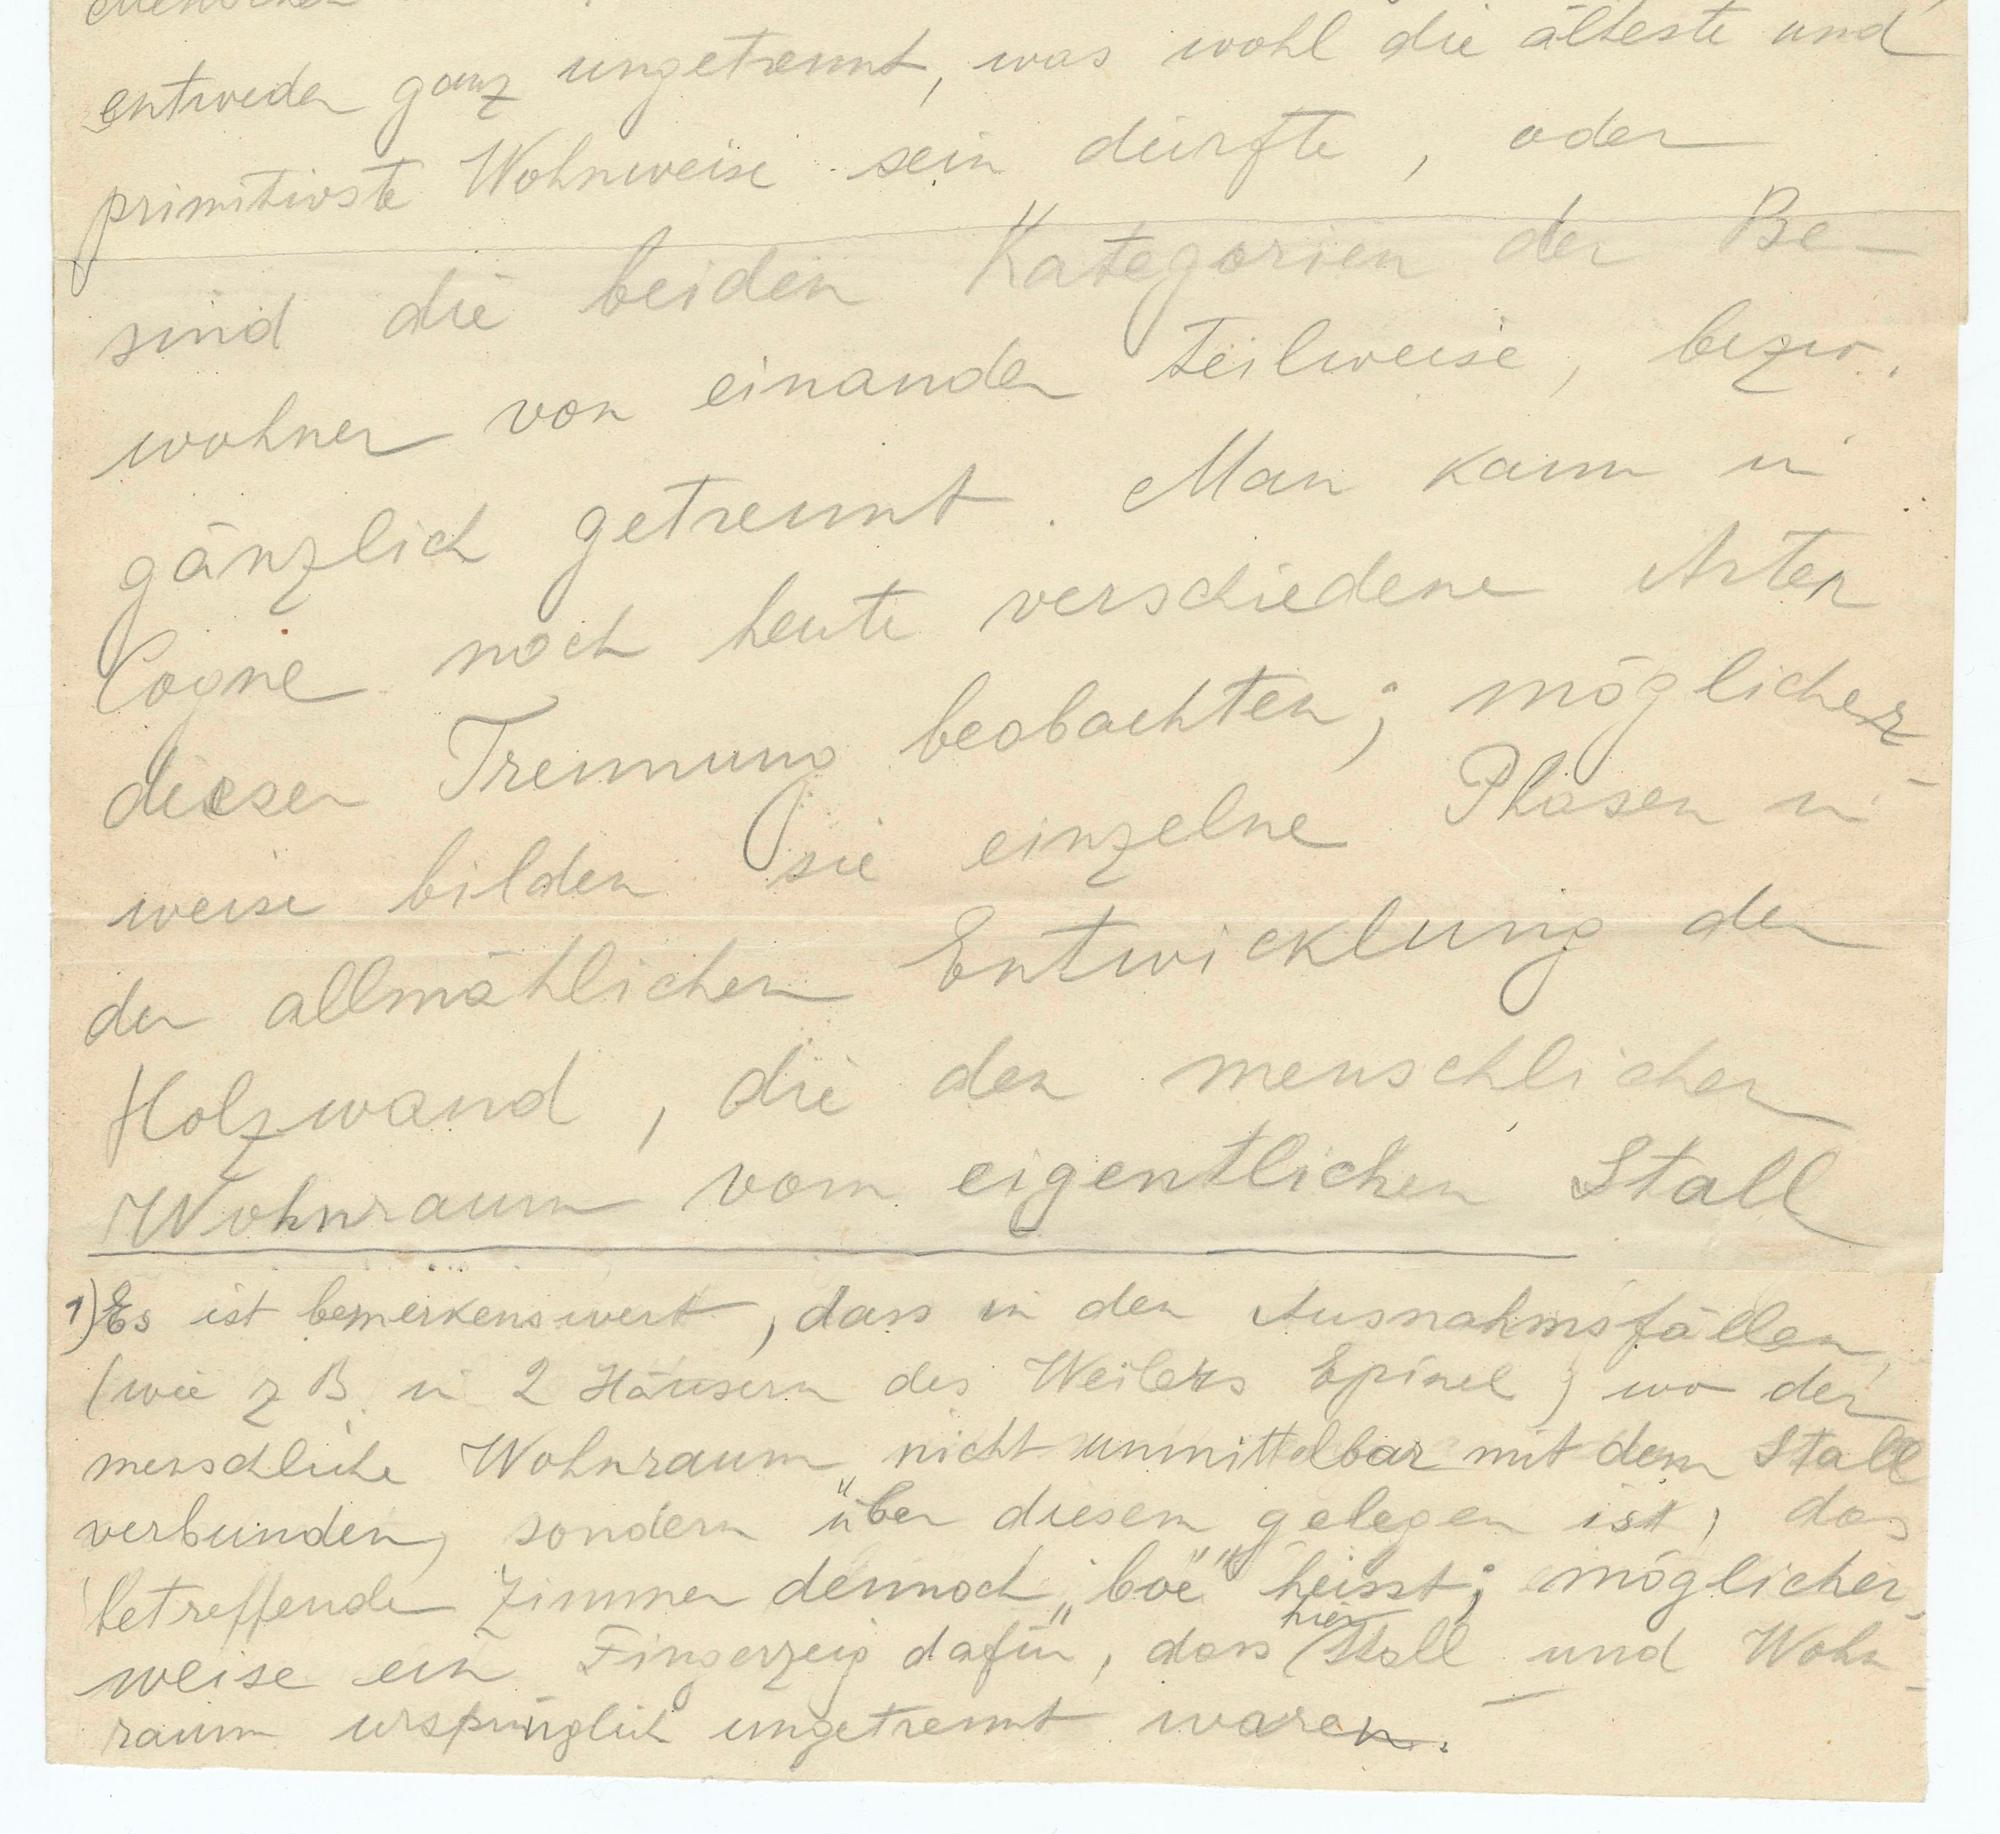 entweder ganz ungetrennt, was wohl die älteste und
primitivste Wohnweise sein dürfte, oder
sind die beiden Kategorien der Be-
wohner von einander teilweise, bezw.
gänzlich getrennt. Man kann in
Cogne noch heute verschiedene Arten
dieser Trennung beobachten; möglicher-
weise bilden sie einzelne Phasen in
der allmählichen Entwicklung der
Holzwand, die den menschlichen
Wohnraum vom eigentlichen Stall
1) Es ist bemerkenswert, dass in den Ausnahmsfällen,
(wie z B. in 2 Häusern des Weilers Epinel) wo der
menschliche Wohnraum nicht unmittelbar mit dem Stall
verbunden, sondern über diesem gelegen ist, das
betreffende Zimmer dennoch „boë" heisst; möglicher-
weise ein Fingerzeig dafür, dass hier Stall und Wohn-
raum ursprünglich ungetrennt waren.